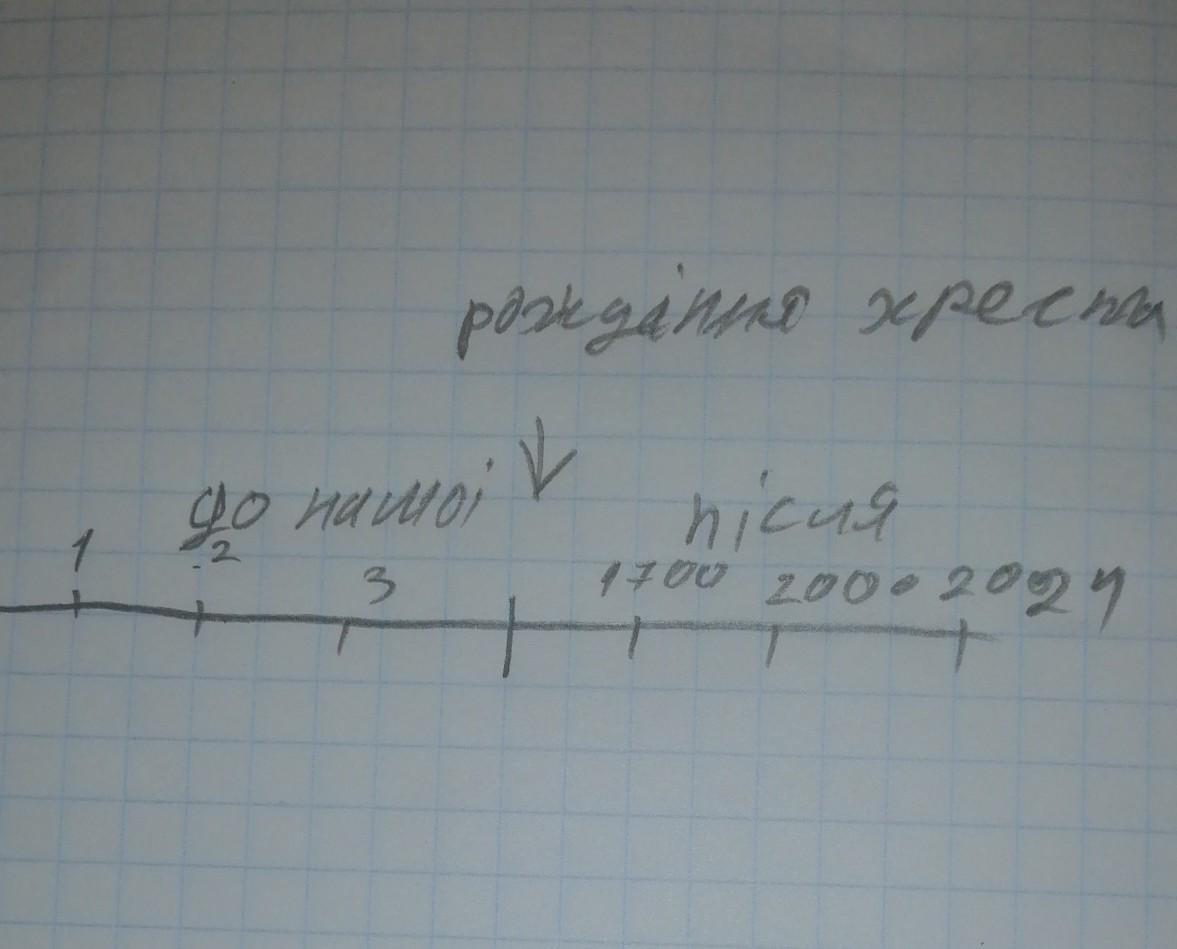 рождіння хреста
до нашої після
1 2 3 1700 2000 2024